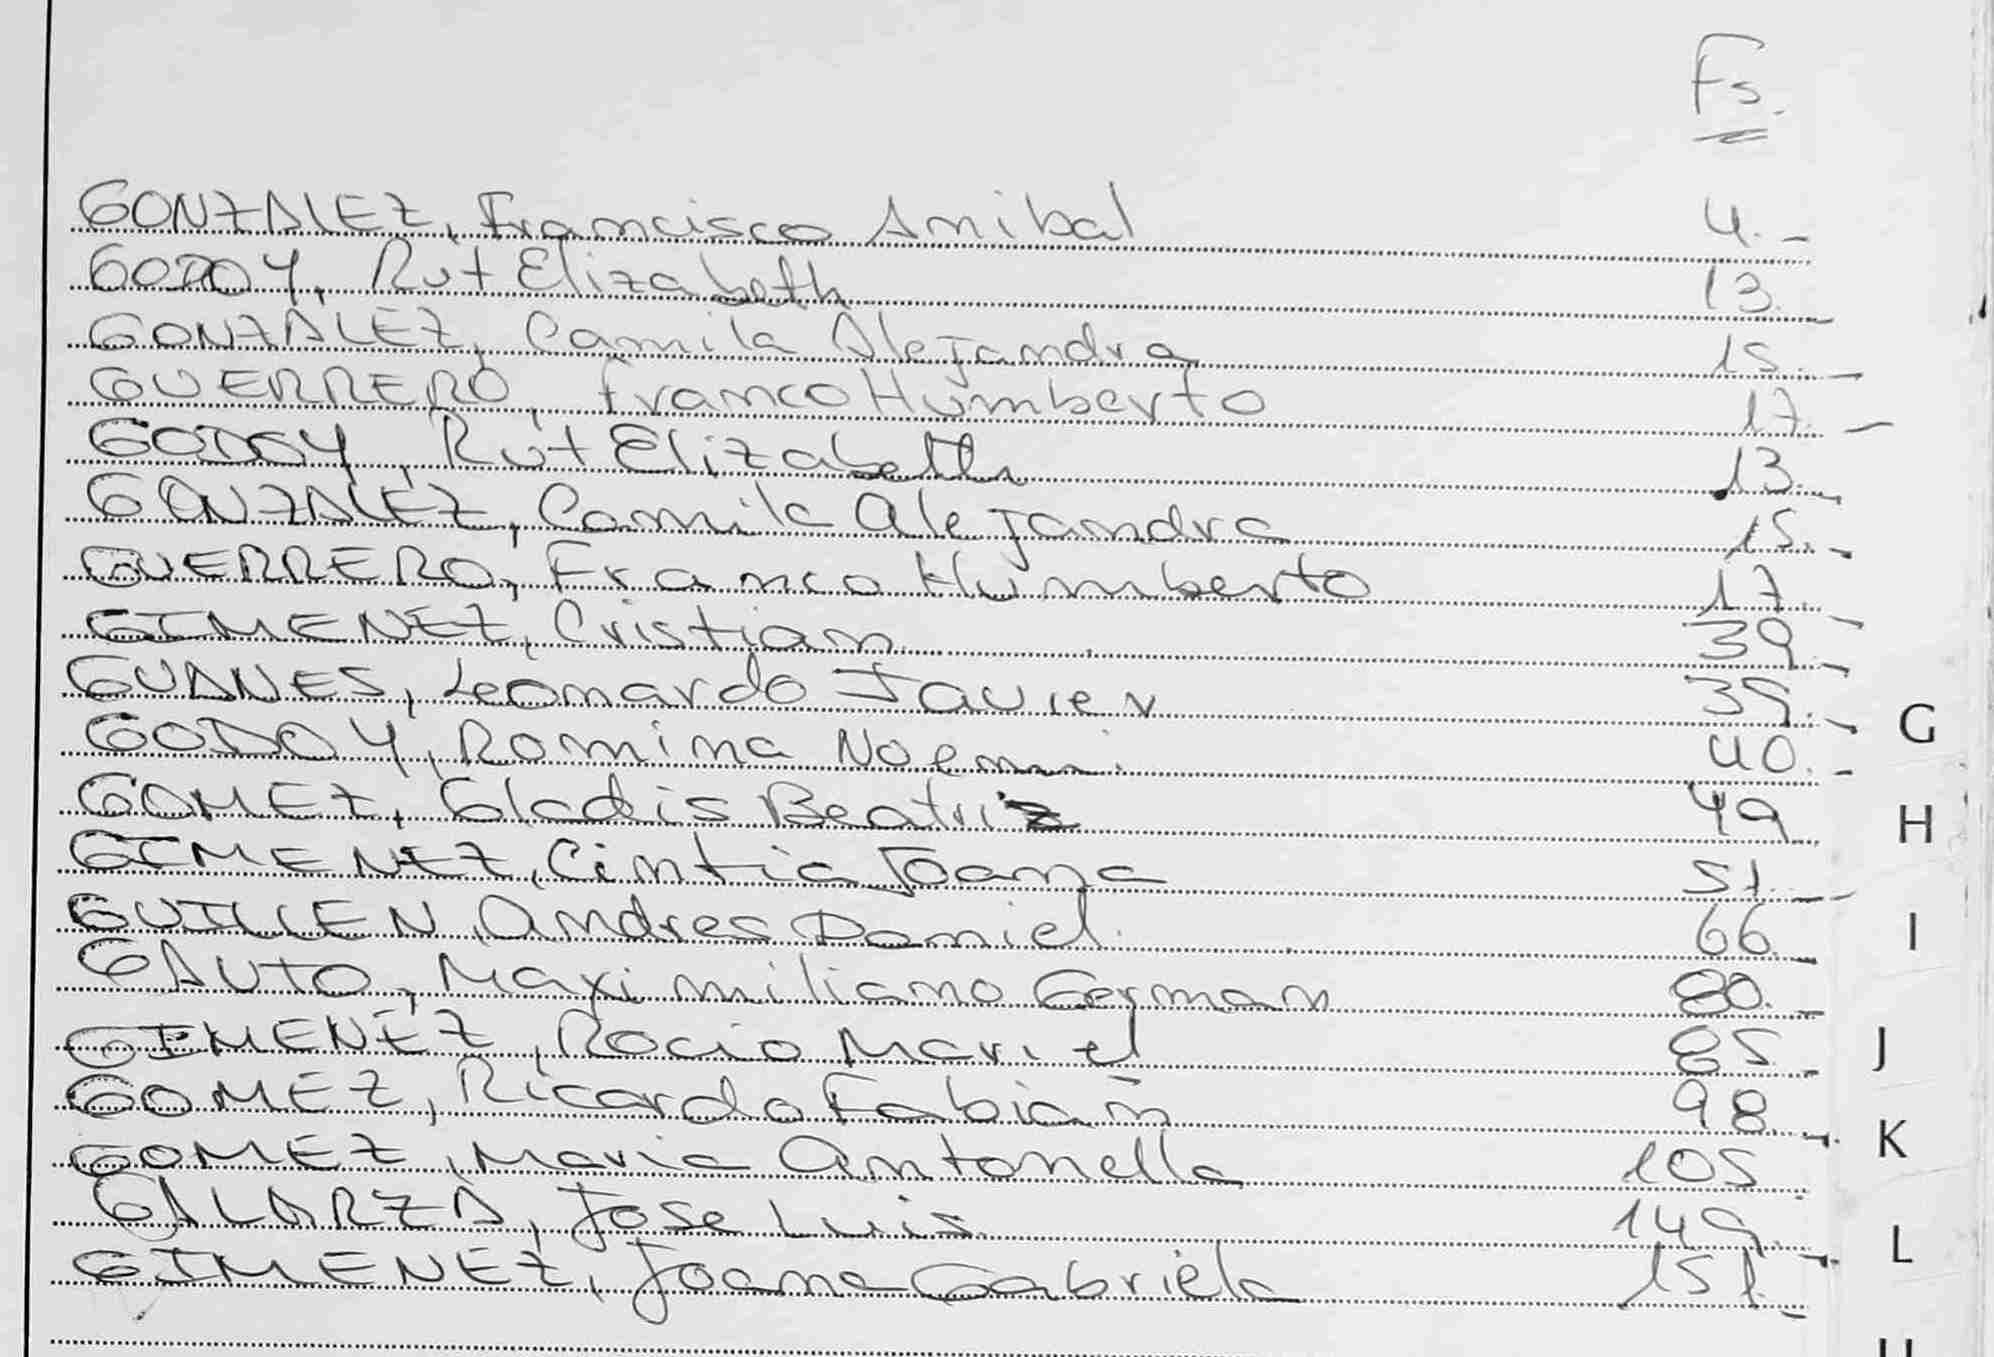 Fs.
GONZALEZ, Francisco Anibal 4.-
GODOY, Rut Elizabeth 13.-
GONZALEZ, Camila Alejandra 15.-
GUERRERO, Franco Humberto 17.-
GODOY, Rut Elizabeth 13.-
GONZALEZ, Camila Alejandra 15.-
GUERRERO, Franco Humberto 17.-
GIMENEZ, Cristian 39.-
GUANES, Leonardo Javier 39.-
G
GODOY, Romina Noemi 40.-
GOMEZ, Gladis Beatriz 49
H
GIMENEZ, Cintia Joana 51.-
GUILLEN, Andres Daniel 66.-
I
GAUTO, Maximiliano German 80.-
GIMENEZ, Rocio Mariel 85.-
J
GOMEZ, Ricardo Fabian 98.-
K
GOMEZ, Maria Antonella 105.
GALARZA, Jose Luis 149.-
L
GIMENEZ, Joana Gabriela 151.-